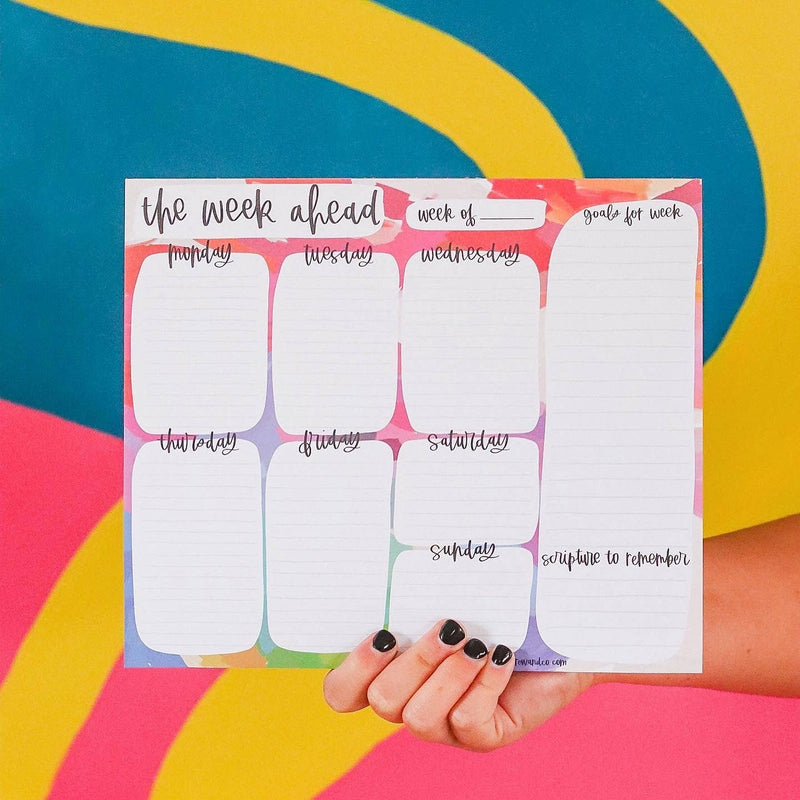 the week ahead
week of
goals for week
monday
tuesday
wednesday
thursday
friday
saturday
sunday
scripture to remember